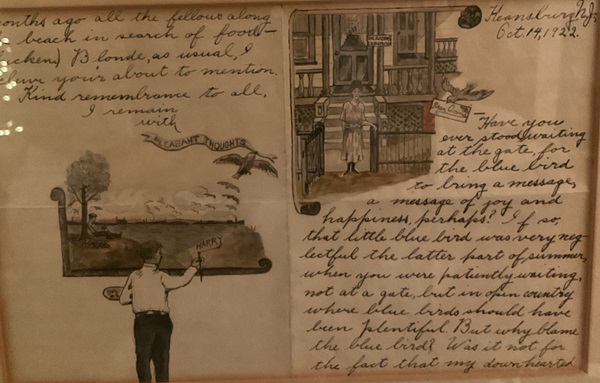 onths ago all the fellows along
beach in search of food—
icken) Blonde, as usual, I
about to mention.
Kind remembrance to all,
I remain
with
PLEASANT THOUGHTS
HARRY
Keansburg N.J.
Oct. 14, 1922
Have you
ever stood waiting
at the gate, for
the blue bird
to bring a message,
a message of joy and
happiness, perhaps? If so,
that little blue bird was very neg-
lectful the latter part of summer,
when you were patiently waiting,
not at a gate, but in open country
where blue birds should have
been plentiful But why blame
the blue bird? Was it not for
the fact that my down hearted